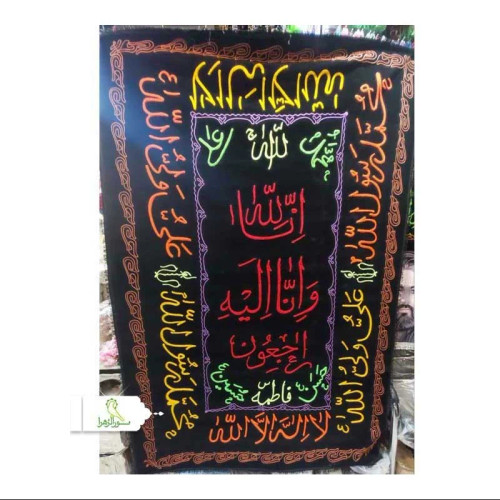 لا اله الا الله
محمد رسول الله
علی ولی الله
الله
محمد
علی
انا لله
وانا الیه
راجعون
حسن
فاطمه
حسین
علی ولی الله
محمد رسول الله
لا اله الا الله